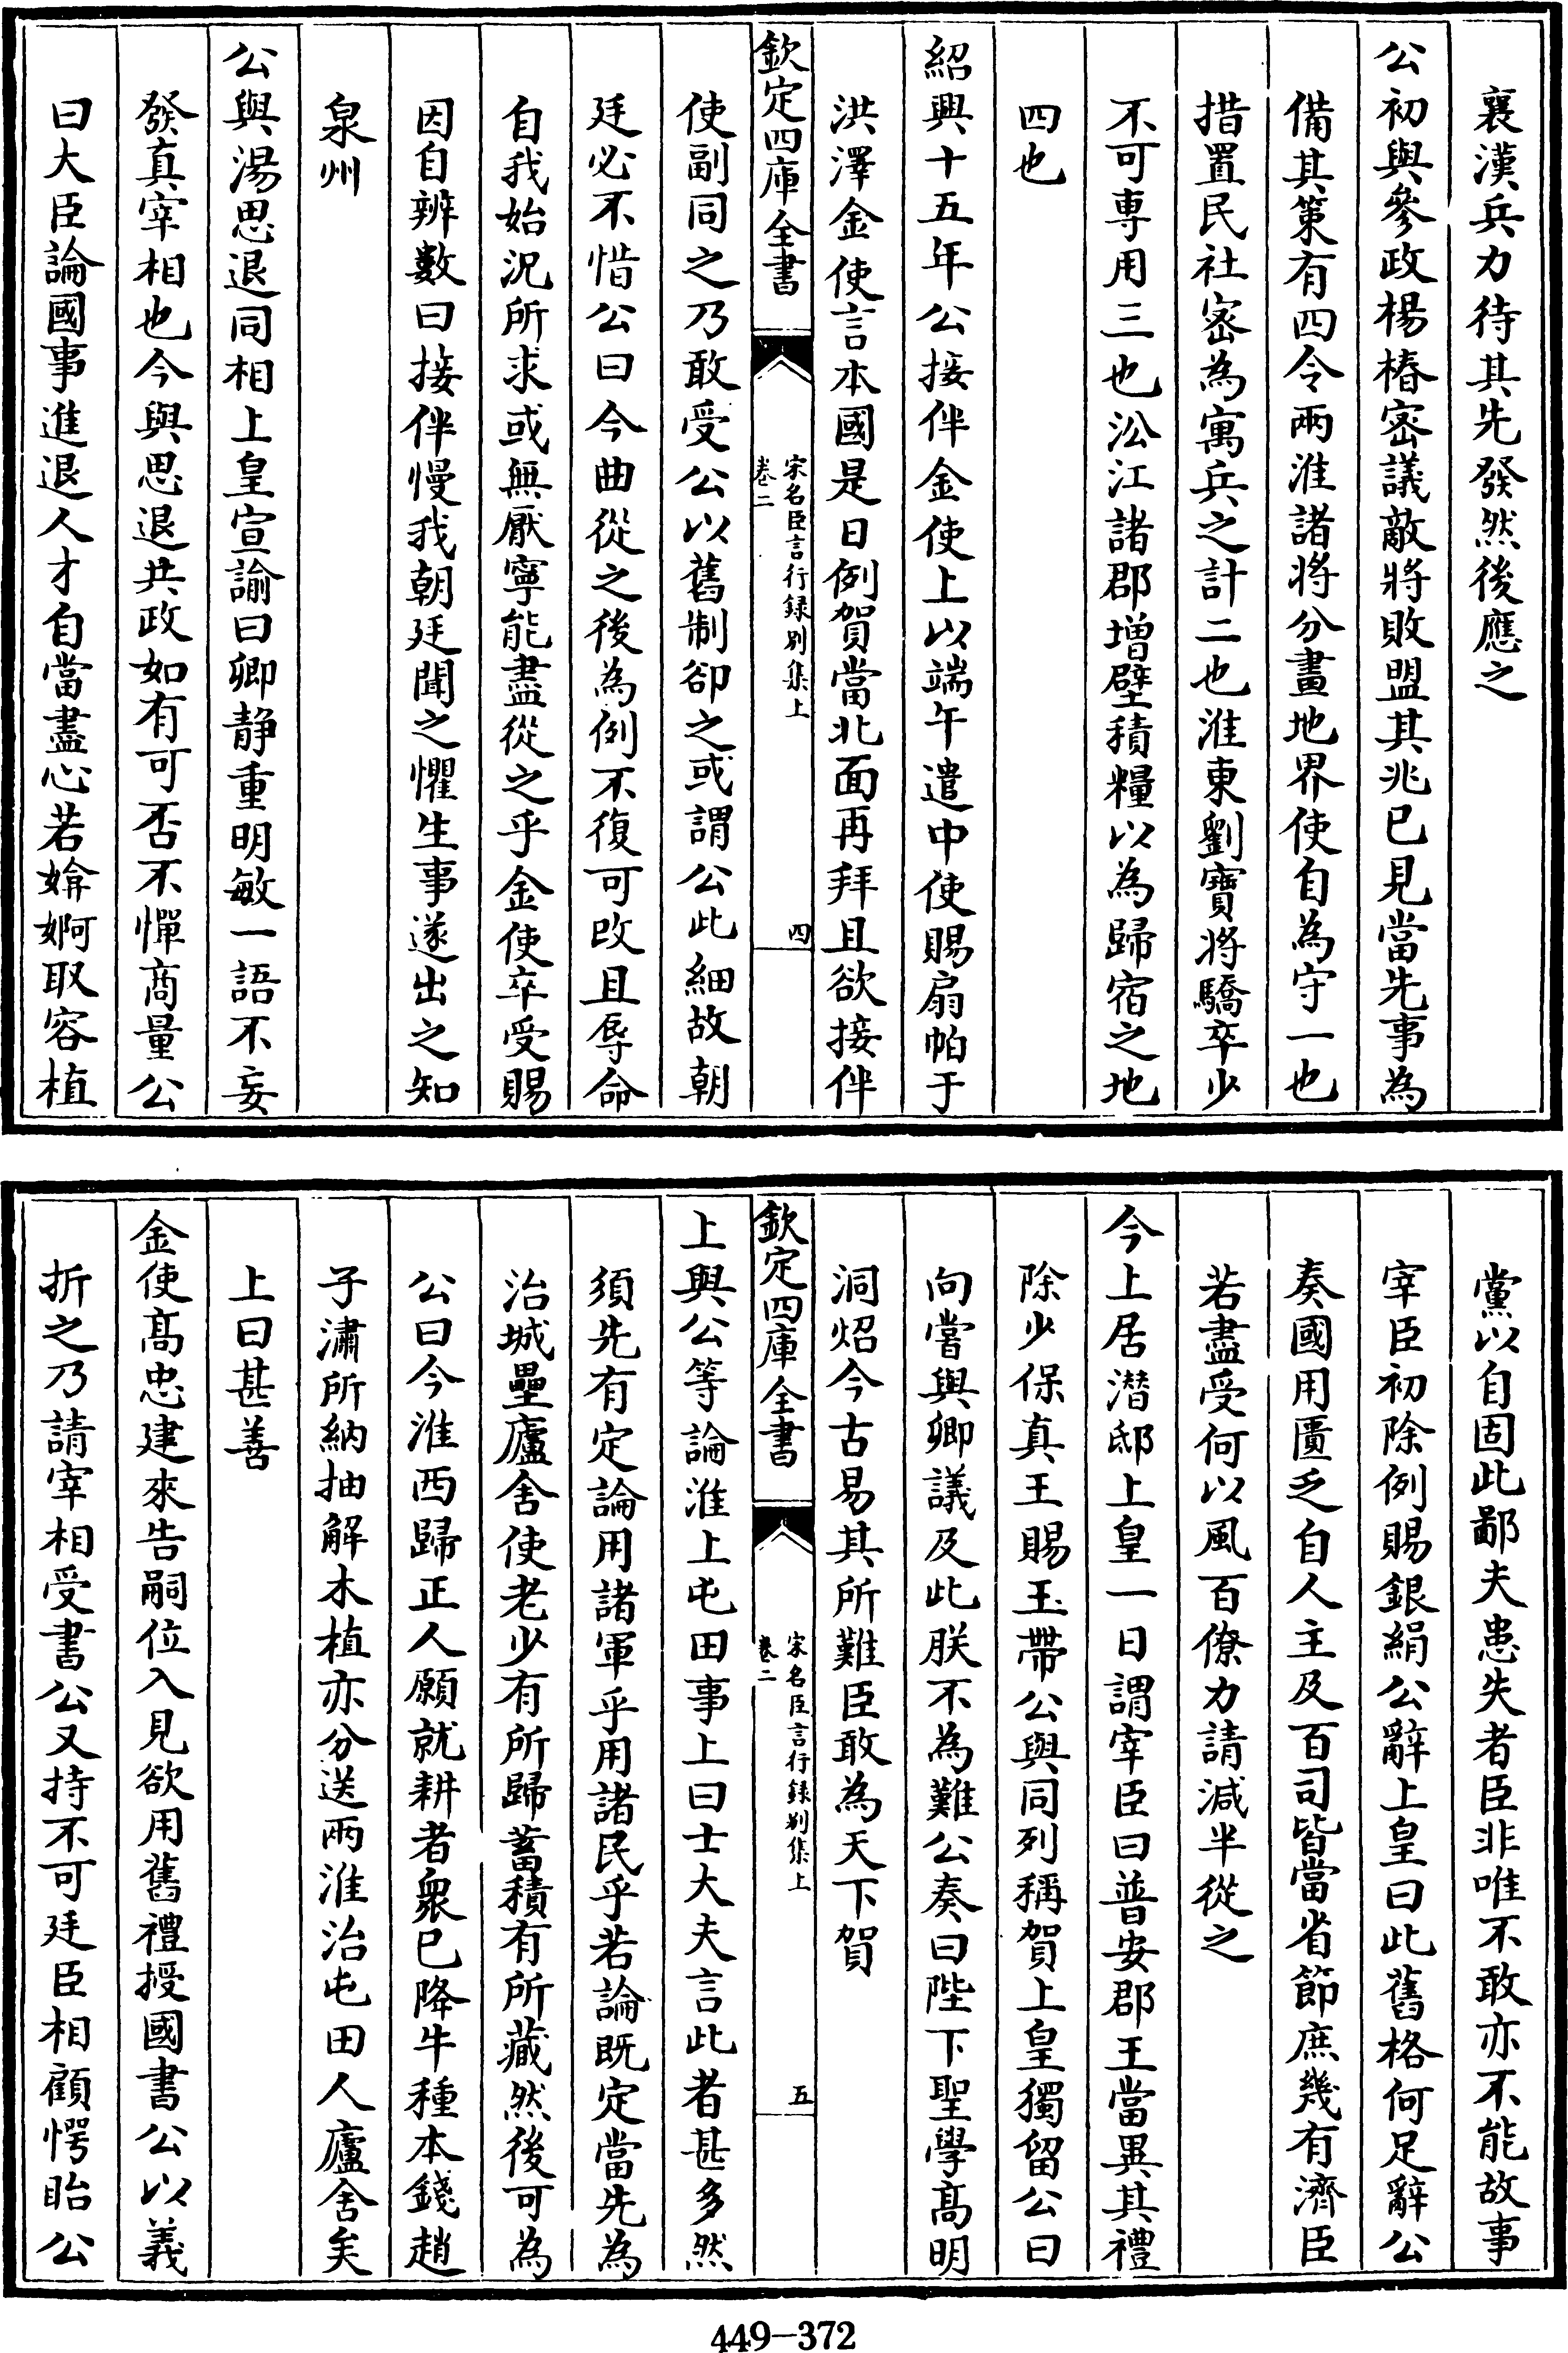 襄漢兵力待其先發然後應之
公初與參政楊椿密議敵將敗盟其兆已見當先事為
備其策有四令兩淮諸將分畫地界使自為守一也
措置民社密為寓兵之計二也淮東劉寶將驕卒少
不可專用三也沿江諸郡增壁積糧以為歸宿之地
四也
紹興十五年公接伴金使上以端午遣中使賜扇帕于
洪澤金使言本國是日例賀當北面再拜且欲接伴
欽定四庫全書
宋名臣言行録别集上
卷二
四
使副同之乃敢受公以舊制卻之或謂公此細故朝
廷必不惜公曰今曲從之後為例不復可改且辱命
自我始況所求或無厭寧能盡從之乎金使卒受賜
因自辨數曰接伴慢我朝廷聞之懼生事遂出之知
泉州
公與湯思退同相上皇宣諭曰卿静重明敏一語不妄
發真宰相也今與思退共政如有可否不憚商量公
曰大臣論國事進退人才自當盡心若媕婀取容植
黨以自固此鄙夫患失者臣非唯不敢亦不能故事
宰臣初除例賜銀絹公辭上皇曰此舊格何足辭公
奏國用匱乏自人主及百司皆當省節庶幾有濟臣
若盡受何以風百僚力請減半從之
今上居潜邸上皇一日謂宰臣曰普安郡王當異其禮
除少保真王賜玉帶公與同列稱賀上皇獨留公曰
向嘗與卿議及此朕不為難公奏曰陛下聖學髙明
洞炤今古易其所難臣敢為天下賀
欽定四庫全書
宋名臣言行録别集上
卷二
五
上與公等論淮上屯田事上曰士大夫言此者甚多然
須先有定論用諸軍乎用諸民乎若論既定當先為
治城壘廬舍使老少有所歸蓄積有所藏然後可為
公曰今淮西歸正人願就耕者衆已降牛種本錢趙
子潚所納抽解木植亦分送兩淮治屯田人廬舍矣
上曰甚善
金使髙忠建來告嗣位入見欲用舊禮授國書公以義
折之乃請宰相受書公又持不可廷臣相顧愕眙公
449—372